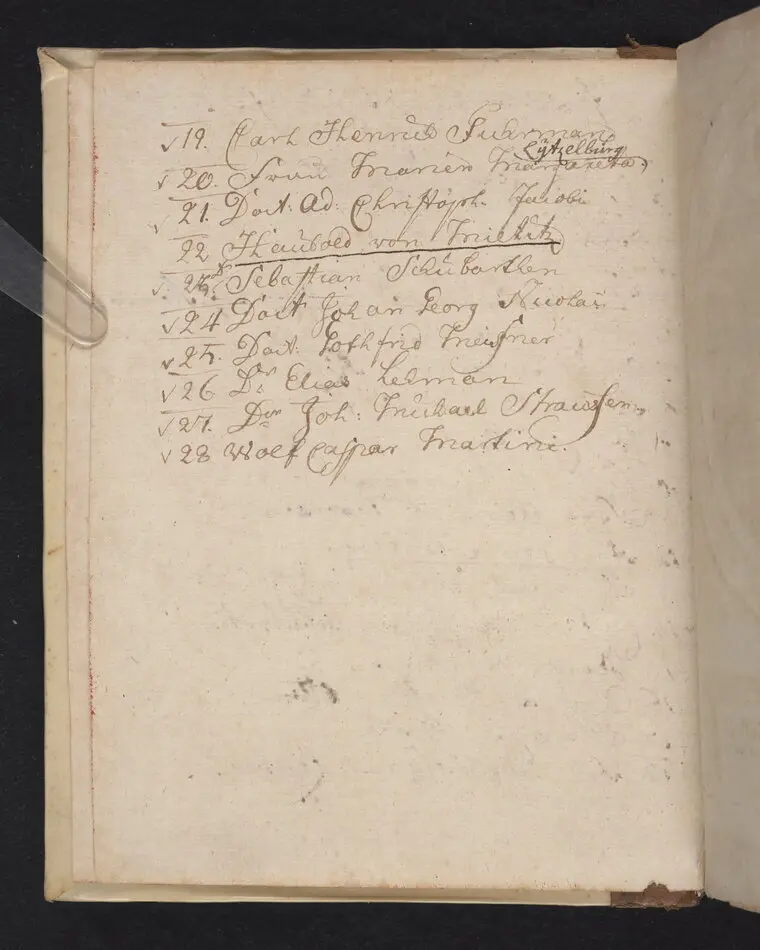 √19. Carl Henrich Fuhrman
Lÿtzelburg
√20. Frau Marien Margareta.
√21. Doct: Ad: Christoph. Jacobi
22 Haubold von Miltitz
√. 23 Dr Sebastian Schübarthen
√24 Doct Johan Georg Nicolai
√25. Doct: Gothfrid Meisner
√26 Dr Elias Lehman
√27. Dr Joh: Michael Straussen
√28 Wolf Caspar Martini.